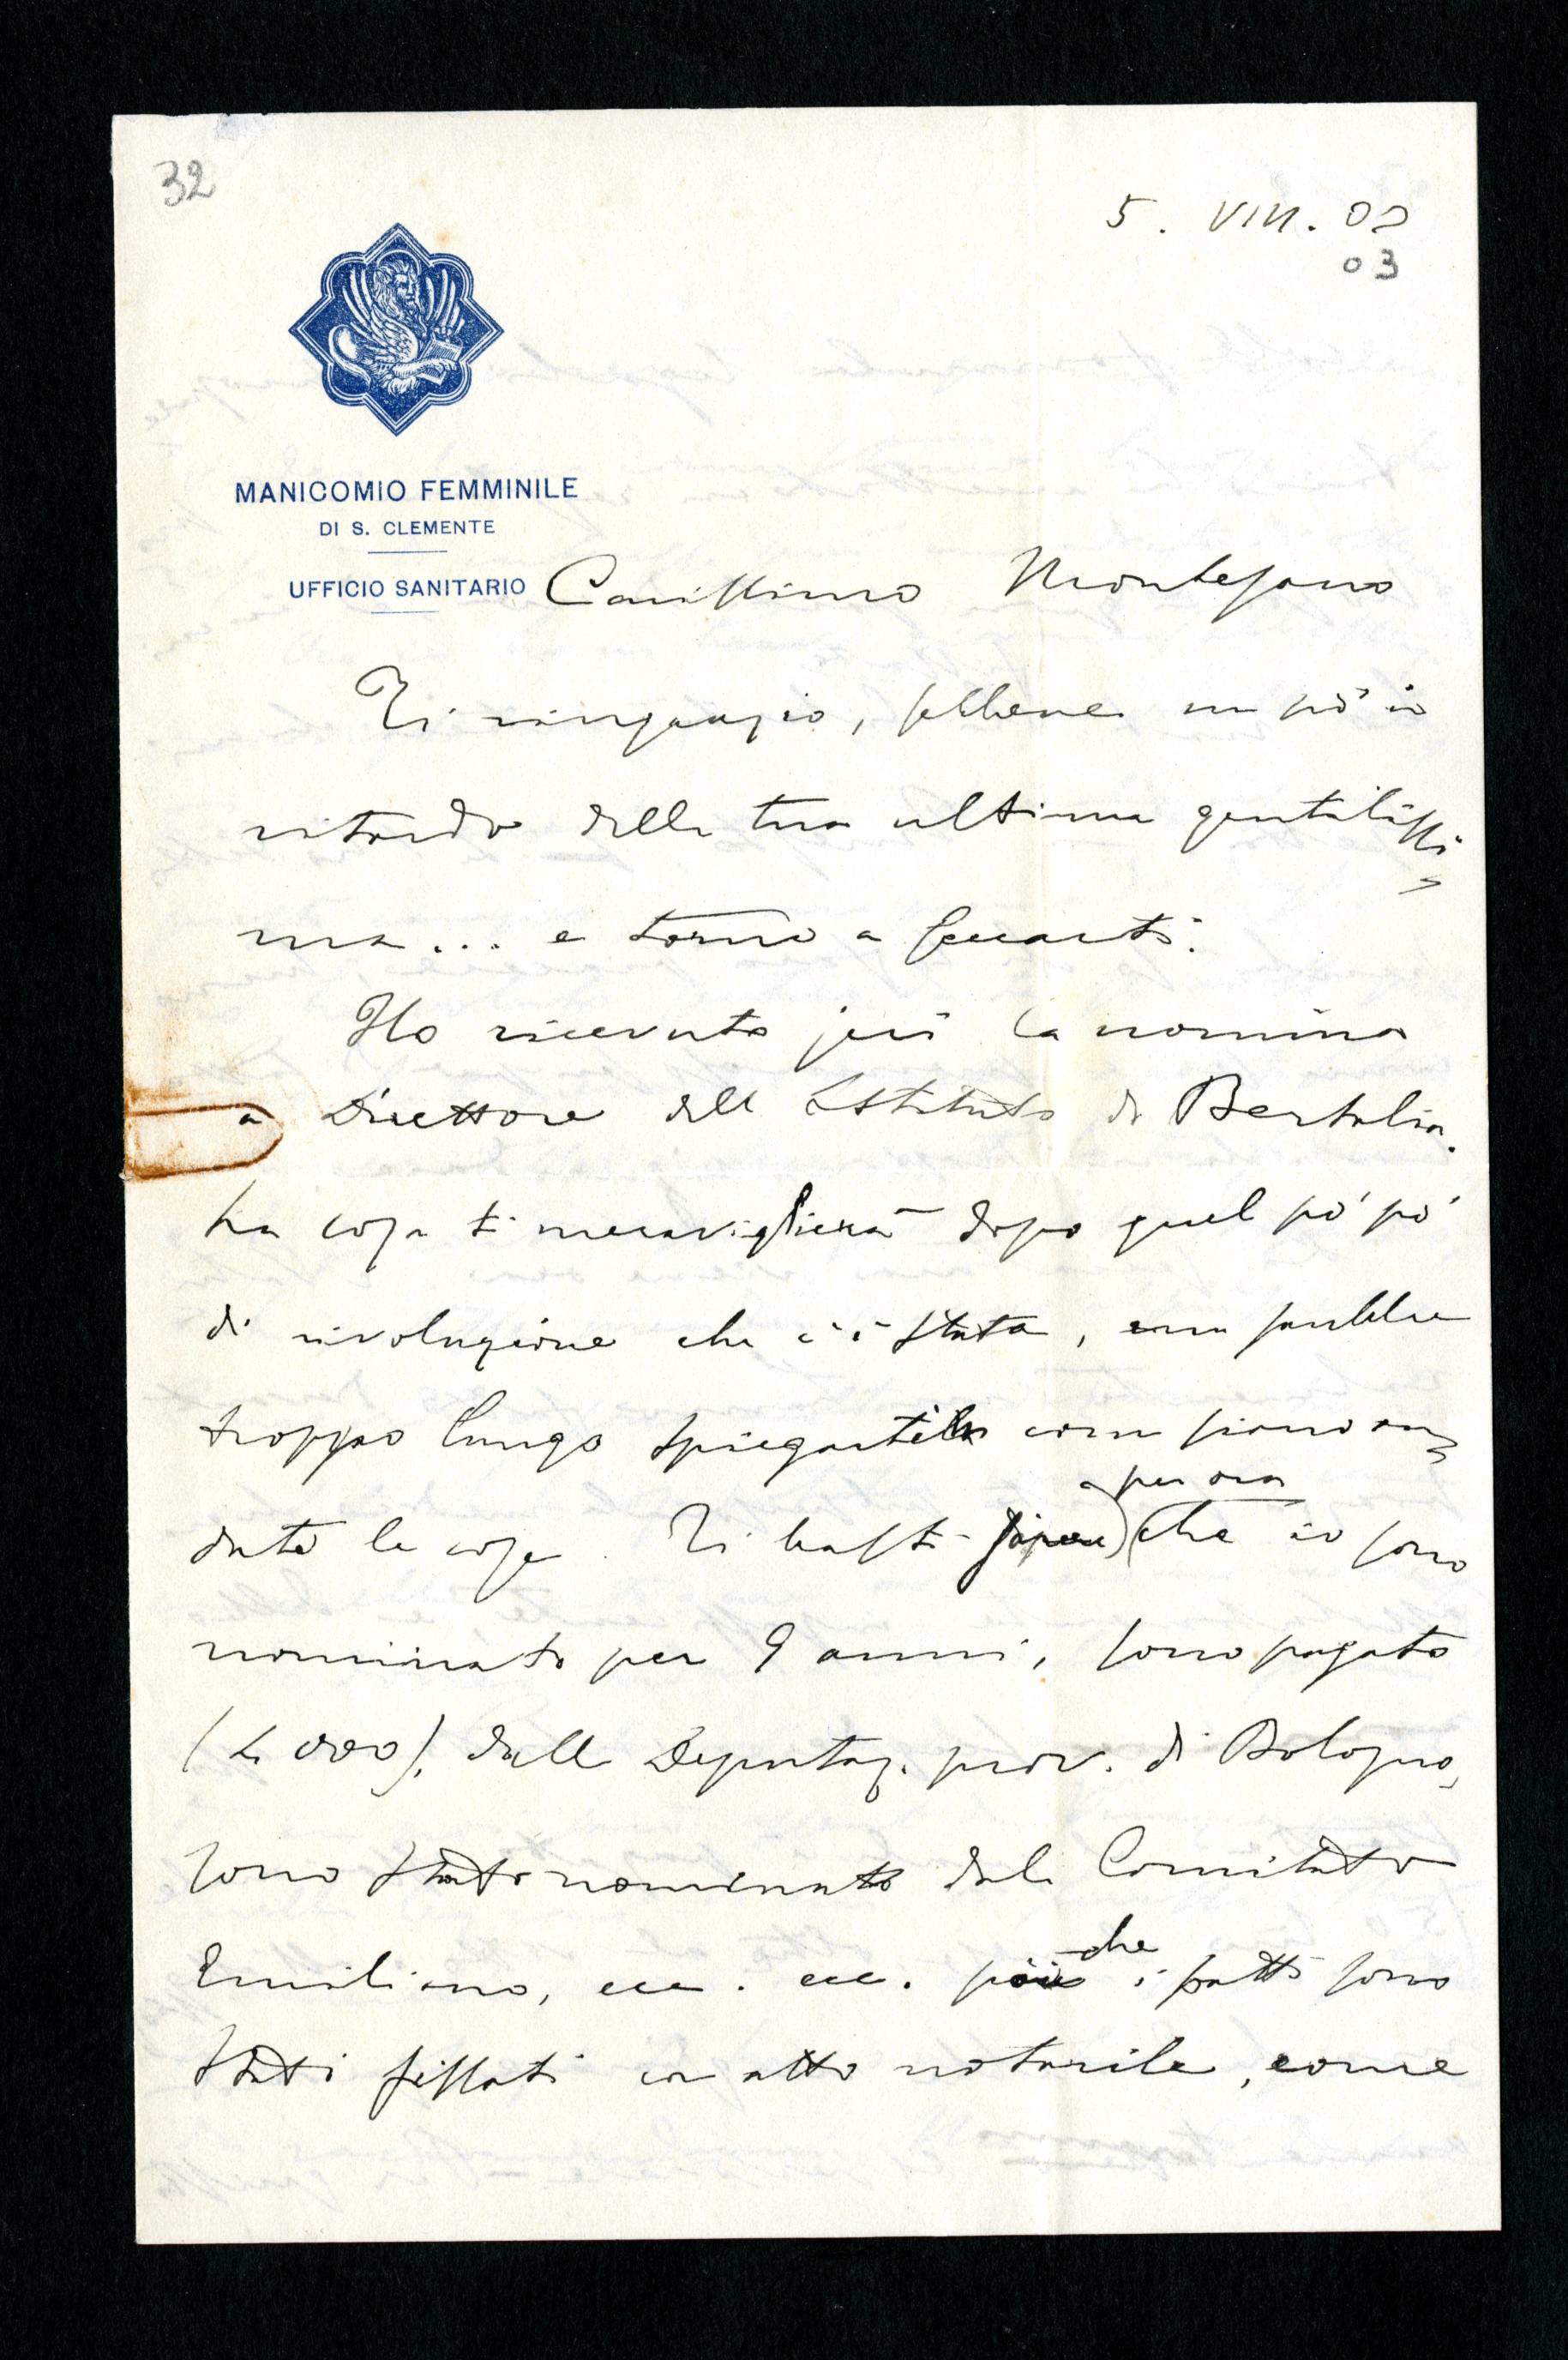 32
5. VIII. 03
03
MANICOMIO FEMMINILE
DI S. CLEMENTE
UFFICIO SANITARIO
Carissimo Montesano
Ti ringrazio, sebbene un pò in
ritardo della tua ultima gentilissi-
ma... e torno a seccarti.
Ho ricevuto jeri la nomina
a Direttore dell Istituto di Bertalia.
La cosa ti meraviglierà dopo quel pò pò
di rivoluzione che c'è stata, ma sarebbe
troppo lungo spiegarti come siano an-
date le cose. Ti basti sapere per ora che io sono
nominato per 9 anni, sono pagato
dalla Deputaz. prov. di Bologna,
sono stato nominato dal Comitato
Emiliano, ecc. ecc. che i patti sono
stati fissati in atto notarile, come